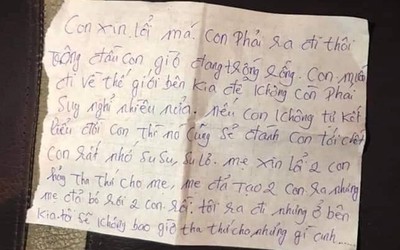 Con xin lổi má. Con phải ra đi thôi
trong đầu con giờ đang trống rỗng. Con muốn
đi về thế giới bên kia để không còn phải
suy nghỉ nhiều nữa. nếu con không tự kết
liểu đời con thì nó cũng sẽ đánh con tới chết
con rất nhớ Su Su, Su Lô. me xin lổi 2 con
hảy tha thứ cho me, me đả tạo 2 con ra nhưng
me đả bỏ rơi 2 con rồi. tôi ra đi nhưng ở bên
kia tô sẽ không bao giờ tha thứ cho những gì anh....